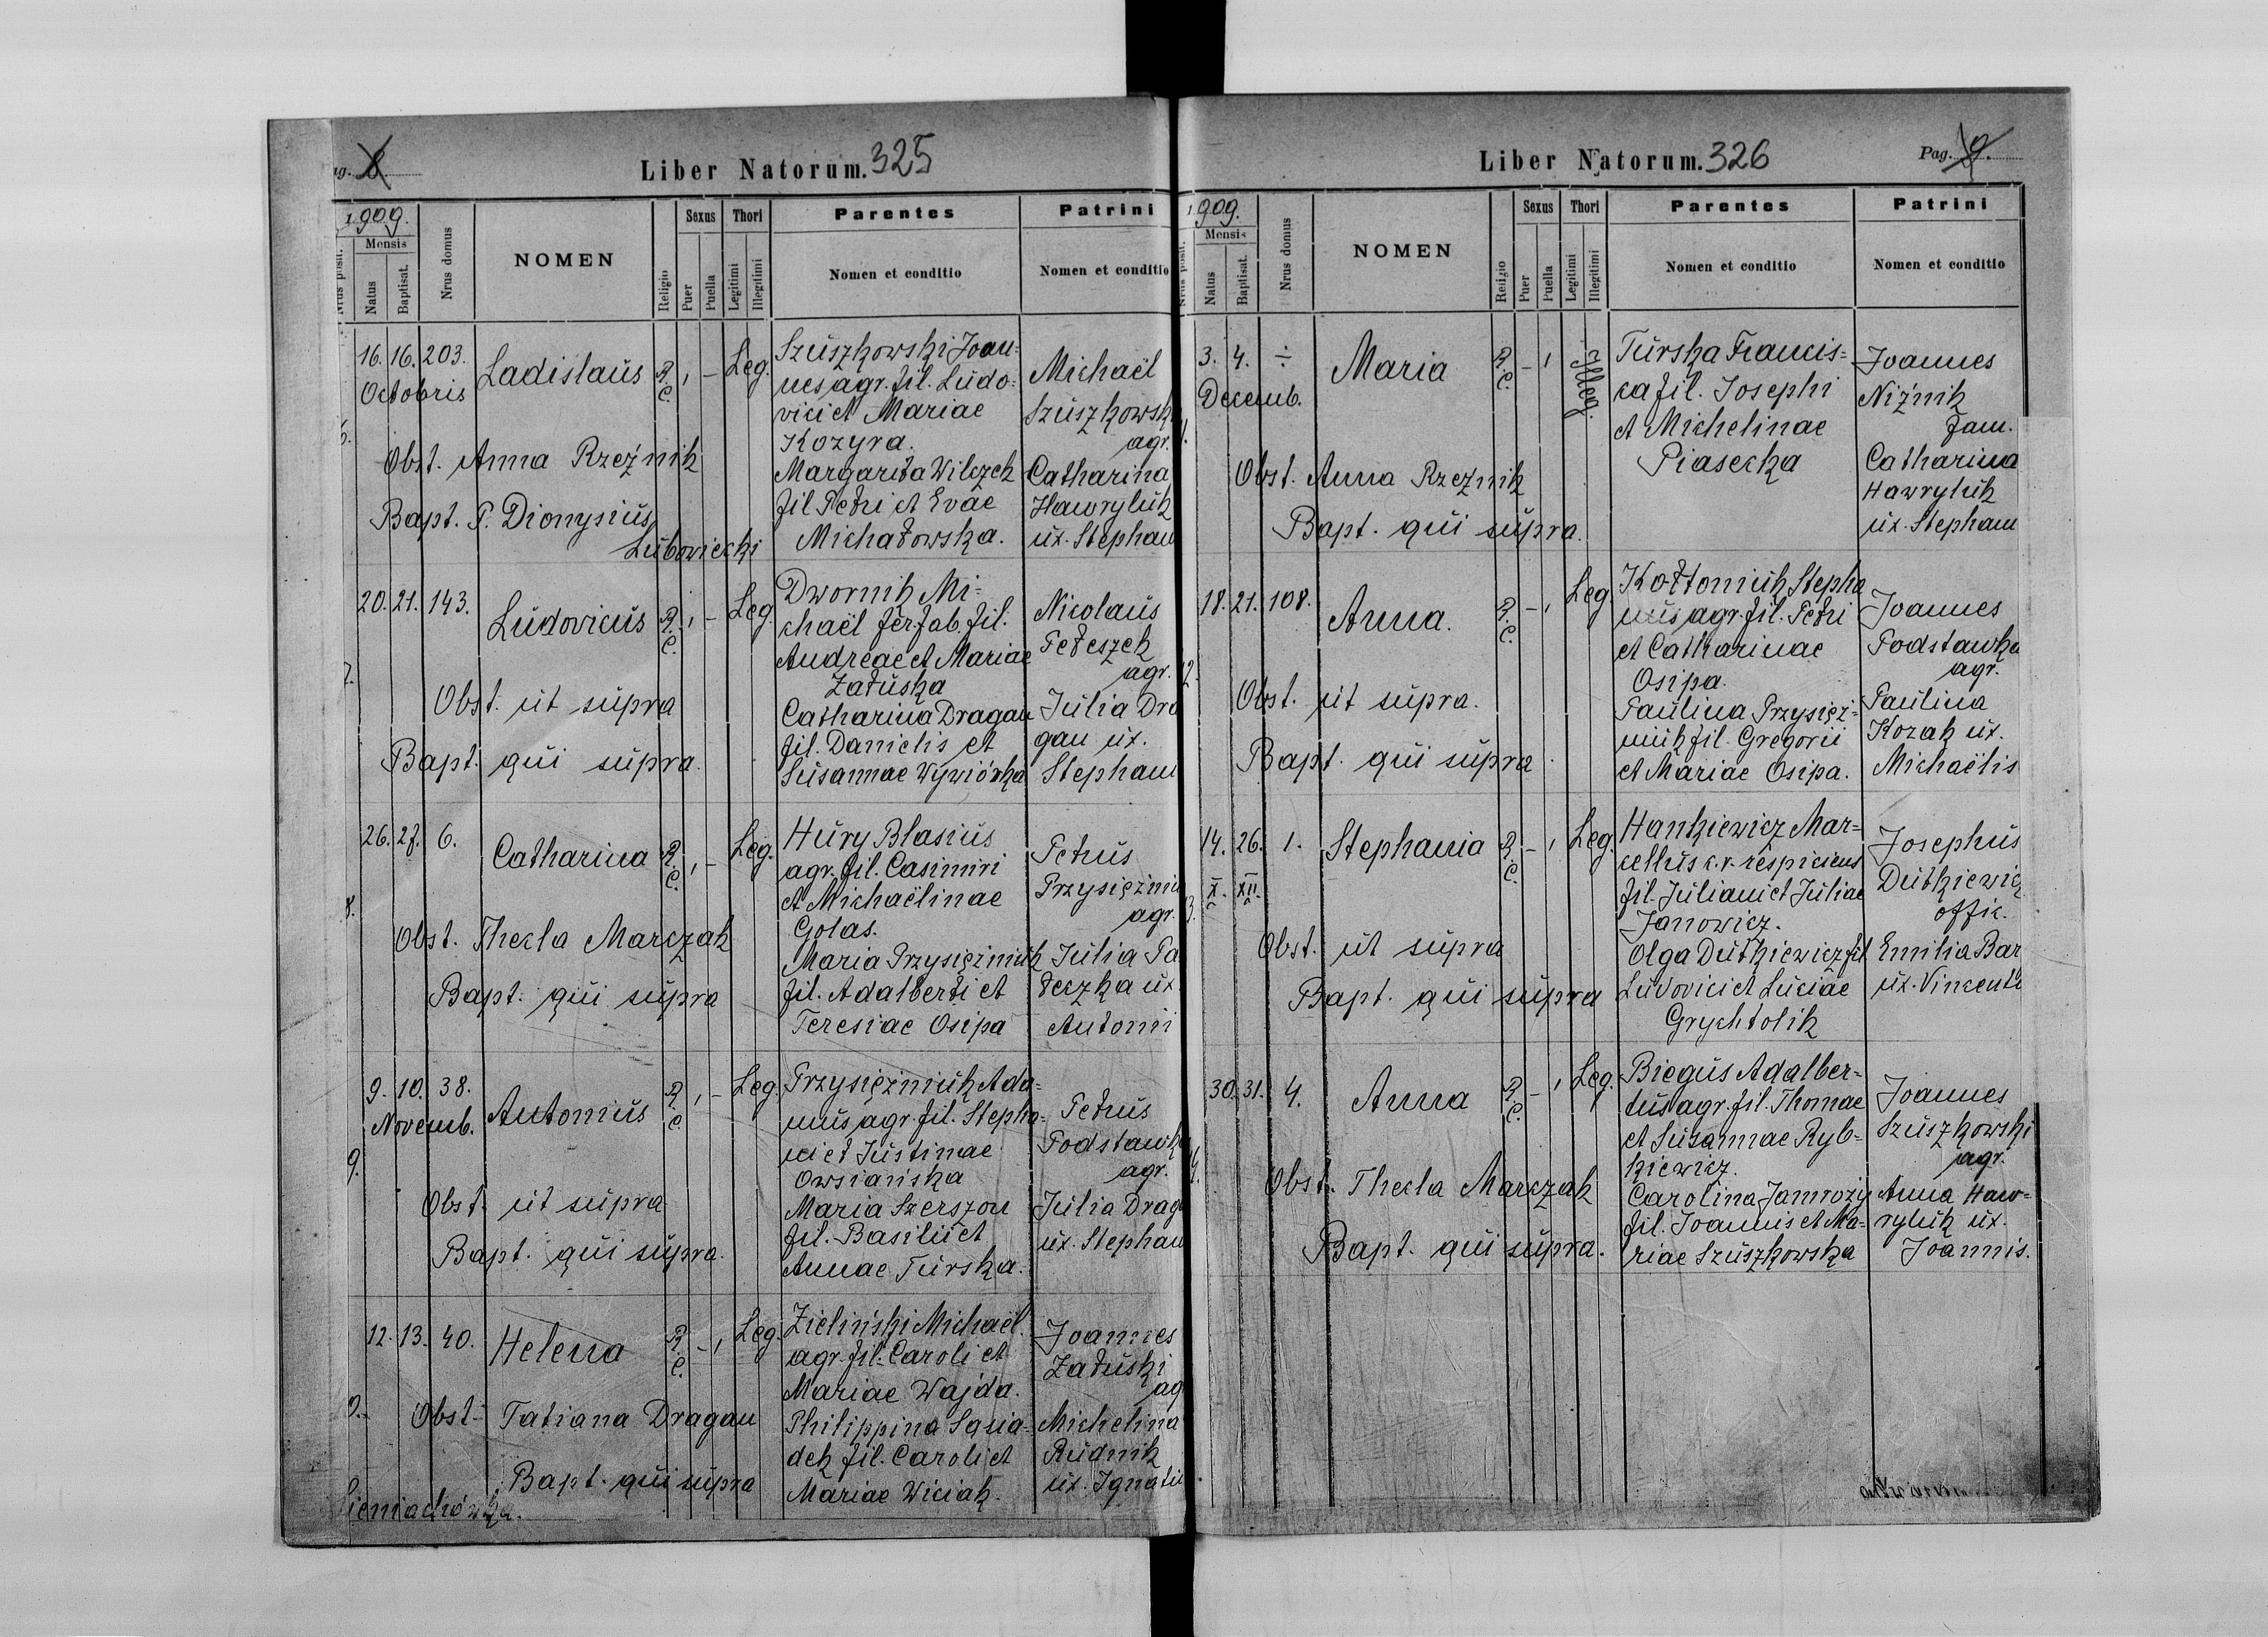 ag. 8
Liber Natorum. 325
1909.
Mensis
Nrus posit.
Natus
Baptisat.
Nrus domus
NOMEN
Religio
Sexus
Puer
Puella
Thori
Legitimi
Illegitimi
Parentes
Nomen et conditio
Patrini
Nomen et conditio
6.
16. 16. 203.
Octobris
Ladislaus
R.
C.
, – Leg.
Obst. Anna Rzeźnik
Bapt. P. Dionysius
Lubowiecki
Szuszkowski Joan=
nes agr. fil. Ludo=
vici et Mariae
Kozyra.
Margarita Wilczek
fil Petri et Evae
Michałowska.
Michaël
Szuszkowsk
agr.
Catharina
Hawryluk
ux. Stephan
7.
20. 21. 143.
Ludovicus
R.
C.
, – Leg.
Obst. ut supra
Bapt. qui supra.
Dwornik Mi=
chaël fer. fab. fil.
Andreae et Mariae
Załuska
Catharina Dragan
fil. Danielis et
Susannae Wywiórka
Nicolaus
Peteszek
agr.
Julia Dra
gan ux.
Stephani
8.
26. 27. 6.
Catharina
R.
C.
, – Leg.
Obst. Thecla Marczak
Bapt. qui supra
Hury Blasius
agr. fil. Casimiri
et Michaëlinae
Golas.
Maria Przysiężniuk
fil. Adalberti et
Teresiae Osipa
Petrus
Przysiężniu
agr.
Julia Pa
teczka ux
Antonii
9.
9. 10. 38.
Novemb.
Antonius
R.
C.
, – Leg.
Obst. ut supra
Bapt. qui supra.
Przysiężniuk Ada=
mus agr. fil. Stepha=
ni et Justinae
Owsiańska
Maria Szerszon
fil. Basilii et
Annae Turska.
Petrus
Podstawk
agr.
Julia Drag
ux. Stephan
0.
12. 13. 40.
Helena
R.
C.
– , Leg.
Obst. Tatiana Dragan
Bapt. qui supra
Zieliński Michaël
agr. fil. Caroli et
Mariae Wajda.
Philippina Sąsia=
dek fil. Caroli et
Mariae Wiciak.
Joannes
Załuski
ag
Michelina
Rudnik
ux. Ignatii
ieniachówka.
Liber Natorum. 326
Pag. 9.
1909.
Mensis
Nrus posit.
Natus
Baptisat.
Nrus domus
NOMEN
Religio
Sexus
Puer
Puella
Thori
Legitimi
Illegitimi
Parentes
Nomen et conditio
Patrini
Nomen et conditio
1.
3. 4. ÷
Decemb.
Maria
R.
C.
– , Illeg.
Obst. Anna Rzeznik
Bapt. qui supra.
Turska Francis=
ca fil. Josephi
et Michelinae
Piasecka
Joannes
Niźnik
fam.
Catharina
Hawryluk
ux. Stephani
2.
18. 21. 108.
Anna.
R.
C.
– , Leg.
Obst. ut supra.
Bapt. qui supra.
Kołtoniuk Stepha
nus agr. fil. Petri
et Catharinae
Osipa.
Paulina Przysięż=
niuk fil. Gregorii
et Mariae Osipa.
Joannes
Podstawka
agr.
Paulina
Kozak ux.
Michaëlis
3.
14. 26. 1.
X. XII.
Stephania
R.
C.
– , Leg.
Obst. ut supra
Bapt. qui supra
Hankiewicz Mar=
cellus c. r. respiciens
fil. Juliani et Juliae
Janowicz.
Olga Dutkiewicz fil
Ludovici et Luciae
Grychtolik
Josephus
Dutkiewicz
offic.
Emilia Bar
ux. Vincenti
4.
30. 31. 4.
Anna
R.
C.
– , Leg.
Obst. Thecla Marczak
Bapt. qui supra.
Biegus Adalber=
tus agr. fil. Thomae
et Susannae Ryb=
kiewicz.
Carolina Jamroży
fil. Joannis et Ma=
riae Szuszkowska
Joannes
Szuszkowski
agr.
Anna Haw=
ryluk ux.
Joannis.